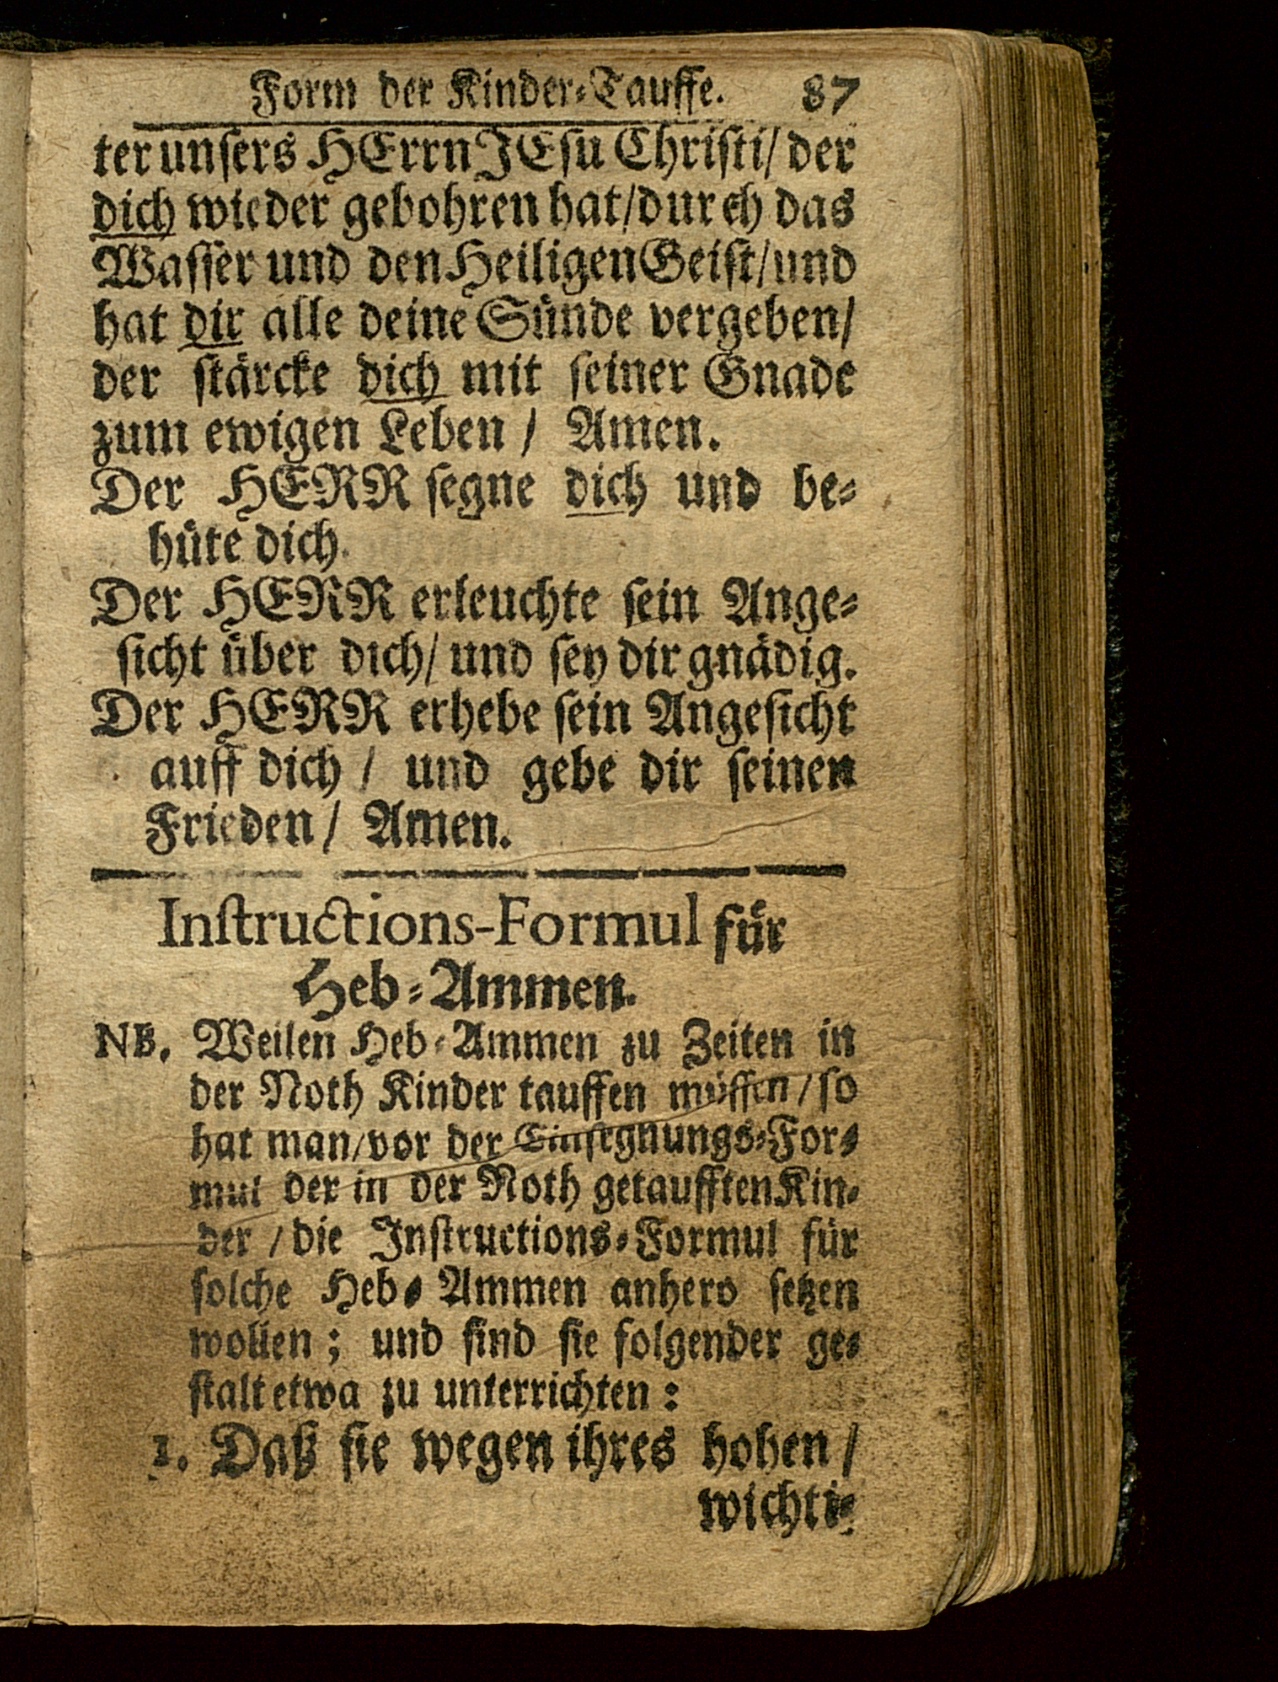 Form der Kinder-Tauffe. 87
ter unsers HErrn JEsu Christi/ der
dich wieder gebohren hat/ durch das
Wasser und den Heiligen Geist/ und
hat dir alle deine Sünde vergeben/
der stärcke dich mit seiner Gnade
zum ewigen Leben / Amen.
Der HERR segne dich und be-
hüte dich.
Der HERR erleuchte sein Ange-
sicht über dich/ und sey dir gnädig.
Der HERR erhebe sein Angesicht
auff dich / und gebe dir seinen
Frieden / Amen.
Instructions-Formul für
Heb-Ammen.
NB. Weilen Heb-Ammen zu Zeiten in
der Noth Kinder tauffen müssen / so
hat man/ vor der Einsegnungs-For-
mul der in der Noth getaufften Kin-
der / die Instructions-Formul für
solche Heb-Ammen anhero setzen
wollen ; und sind sie folgender ge-
stalt etwa zu unterrichten :
1. Daß sie wegen ihres hohen /
wichti-